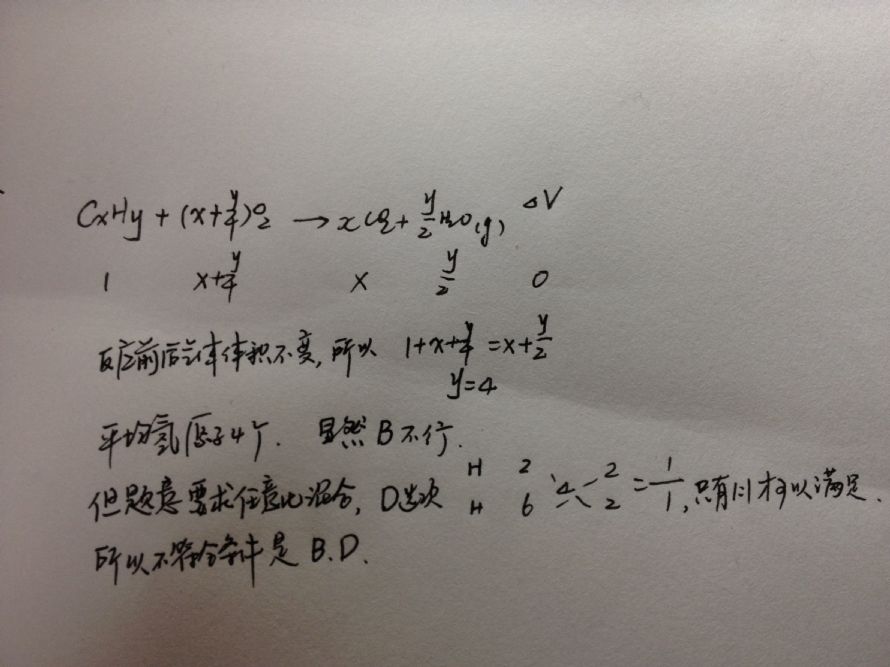 CxHy + (x+y/4)O2 → xCO2 + y/2 H2O(g) ΔV
1 x+y/4 x y/2 0
反应前后气体体积不变,所以 1+x+y/4=x+y/2
y=4
平均氢原子4个. 显然B不行.
但题意要求任意比混合, D选项 H 2 H 6 4 2 2 = 1/1, 只有1:1才可以满足.
所以不符合条件是 B.D.